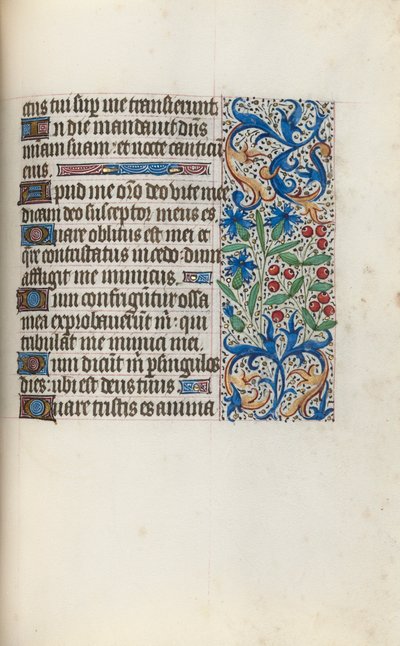 ctus tui sup me transierunt.
In die mandauit dns
miam suam: et nocte canticū
eius.
Apud me oro deo vite mee
dicam deo susceptor meus es
Quare oblitus est mei et
qre contristatus incedo: dum
affligit me inimicus.
Dum confringūtur ossa
mea exprobauerūt m: qui
tribulāt me inimici mei.
Dum dicūt m p singulos
dies: ubi est deus tuus.
Quare tristis es anima